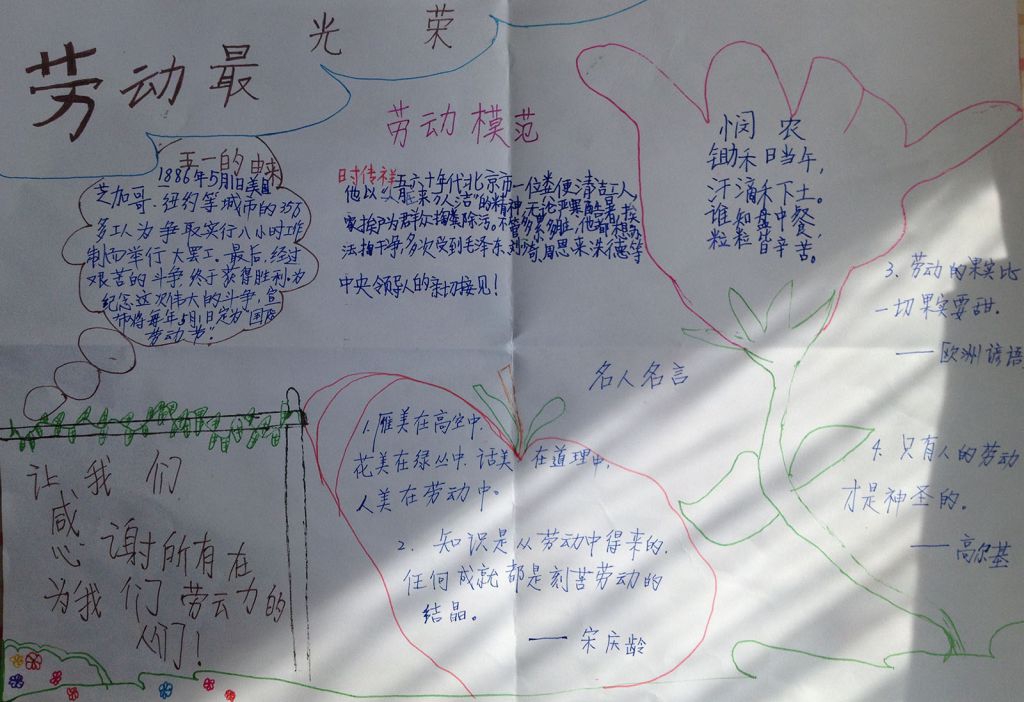 劳动最
光荣
五一的由来
1886年5月1日美国
芝加哥.纽约等城市的35万
多工人为争取实行八小时工作
制而举行大罢工.最后,经过
艰苦的斗争终于获得胜利.为
纪念这次伟大的斗争,宣
布将每年5月1日定为"国际
劳动节"!
劳动模范
时传祥 五六十年代北京市一位粪便清洁工人,
他以
的精神,无论严寒酷暑,挨
家挨户为群众掏粪除污。不管多累多脏,他都
多次受到毛泽东刘
周恩来朱德等
中央领导人的亲切接见!
悯农
锄禾日当午,
汗滴禾下土。
谁知盘中餐,
粒粒皆辛苦。
名人名言
1.雁美在高空中.
花美在绿丛中.话美在道理中,
人美在劳动中。
2. 知识是从劳动中得来的.
任何成就都是刻苦劳动的
结晶。
——宋庆龄
3、劳动的果实比
一切果实要甜.
——欧洲谚语
4.只有人的劳动
才是神圣的。
——高尔基
让我们
感
谢所有在
为我们劳动的
人们!